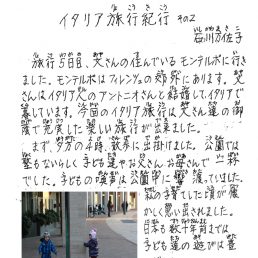 イタリア旅行紀行 その2
石川万佐子
旅行5日目、文さんの住んでいるモンテルポに行き
ました。モンテルポはフィレンツェの郊外にあります。文
さんはイタリア人のアントニオさんと結婚してイタリアで
暮しています。今回のイタリア旅行は文さん達のお
陰で充実した楽しい旅行が出来ました。
まず、夕方の4時、散歩に出掛けました。公園では
塾もないらしく子ども達やお父さんお母さんで一杯
でした。子どもの喚声は公園中に響渡っていました。
私の子育てした頃が懐
かしく思い出されました。
日本も数十年前までは
子ども達の遊びは豊